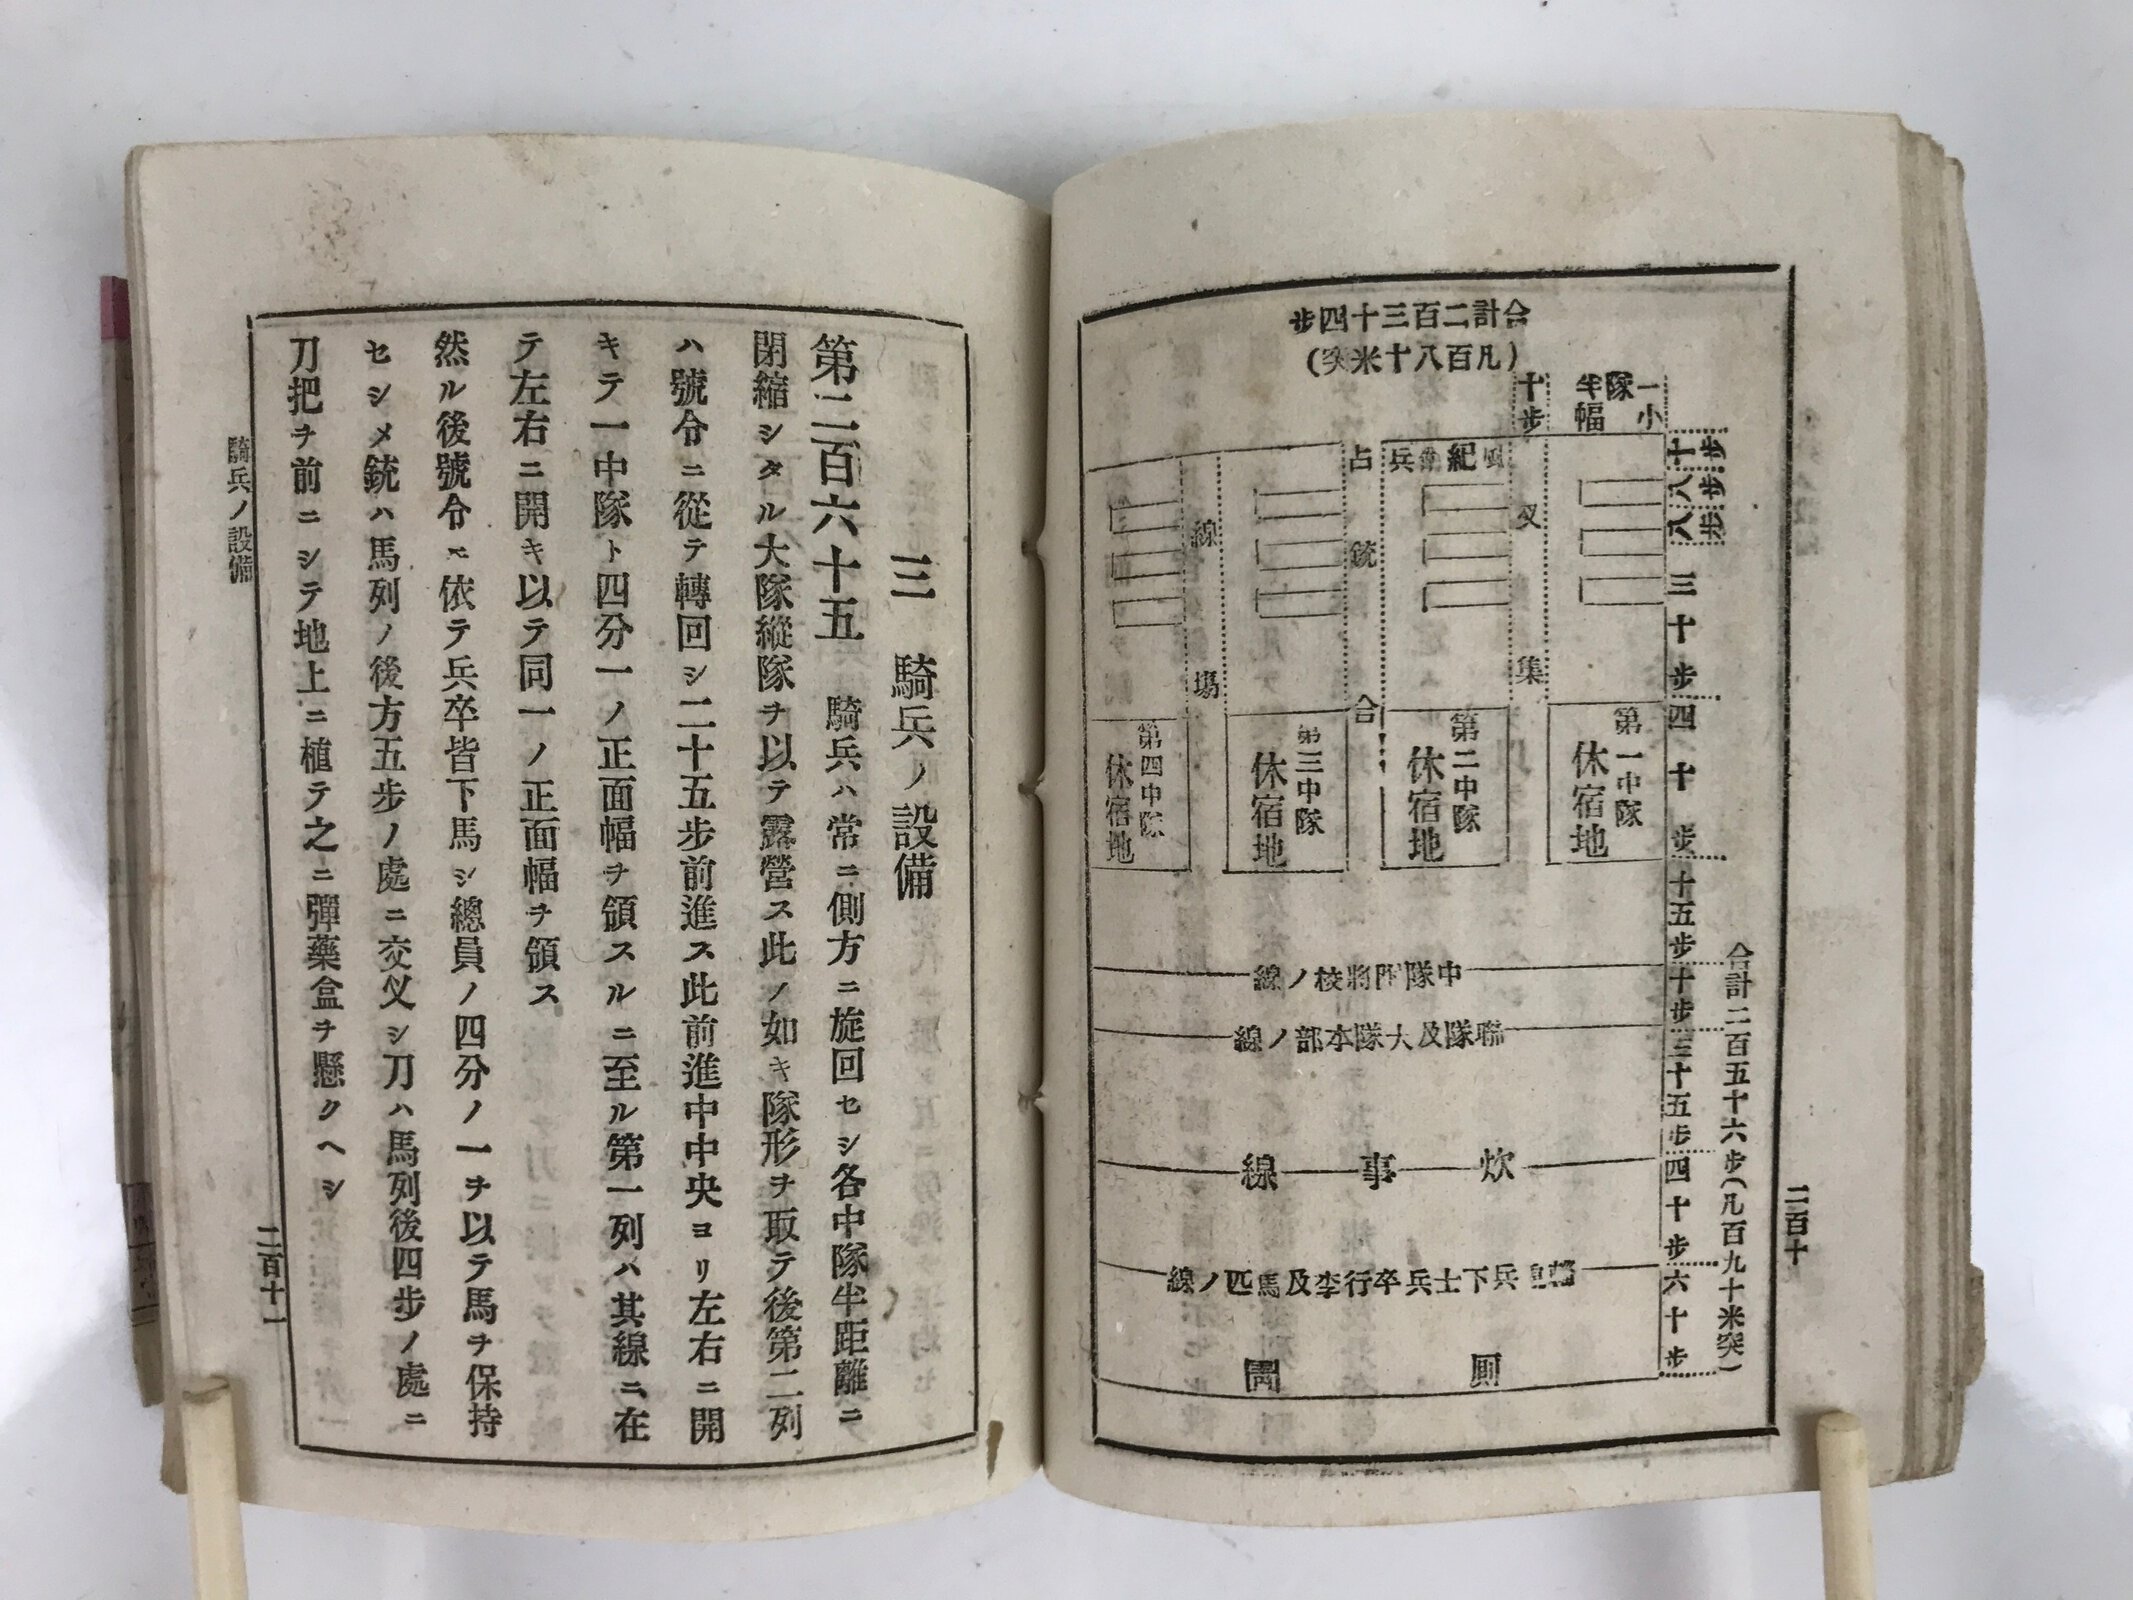 合計二百三十四步
(凡百八十米突)
一小隊半幅
十步
十步
八步
八步
三十步
四十步
十五步
十步
三十五步
四十步
六十步
合計二百五十六步(凡百九十米突)
叉銃線
集合場
占
紀
兵
第一中隊
休宿地
第二中隊
休宿地
第三中隊
休宿地
第四中隊
休宿地
中隊附將校ノ線
聯隊及大隊本部ノ線
炊事線
兵下士兵卒行李及馬匹ノ線
厠圊
二百十
三 騎兵ノ設備
第二百六十五 騎兵ハ常ニ側方ニ旋回セシ各中隊半距離ニ
閉縮シタル大隊縱隊ヲ以テ露營ス此ノ如キ隊形ヲ取テ後第二列
ハ號令ニ從テ轉回シ二十五步前進ス此前進中中央ヨリ左右ニ開
キテ一中隊ト四分一ノ正面幅ヲ領スルニ至ル第一列ハ其線ニ在
テ左右ニ開キ以テ同一ノ正面幅ヲ領ス
然ル後號令ニ依テ兵卒皆下馬シ總員ノ四分ノ一ヲ以テ馬ヲ保持
セシメ銃ハ馬列ノ後方五步ノ處ニ交叉シ刀ハ馬列後四步ノ處ニ
刀把ヲ前ニシテ地上ニ植テ之ニ彈藥盒ヲ懸クヘシ
騎兵ノ設備
二百十一